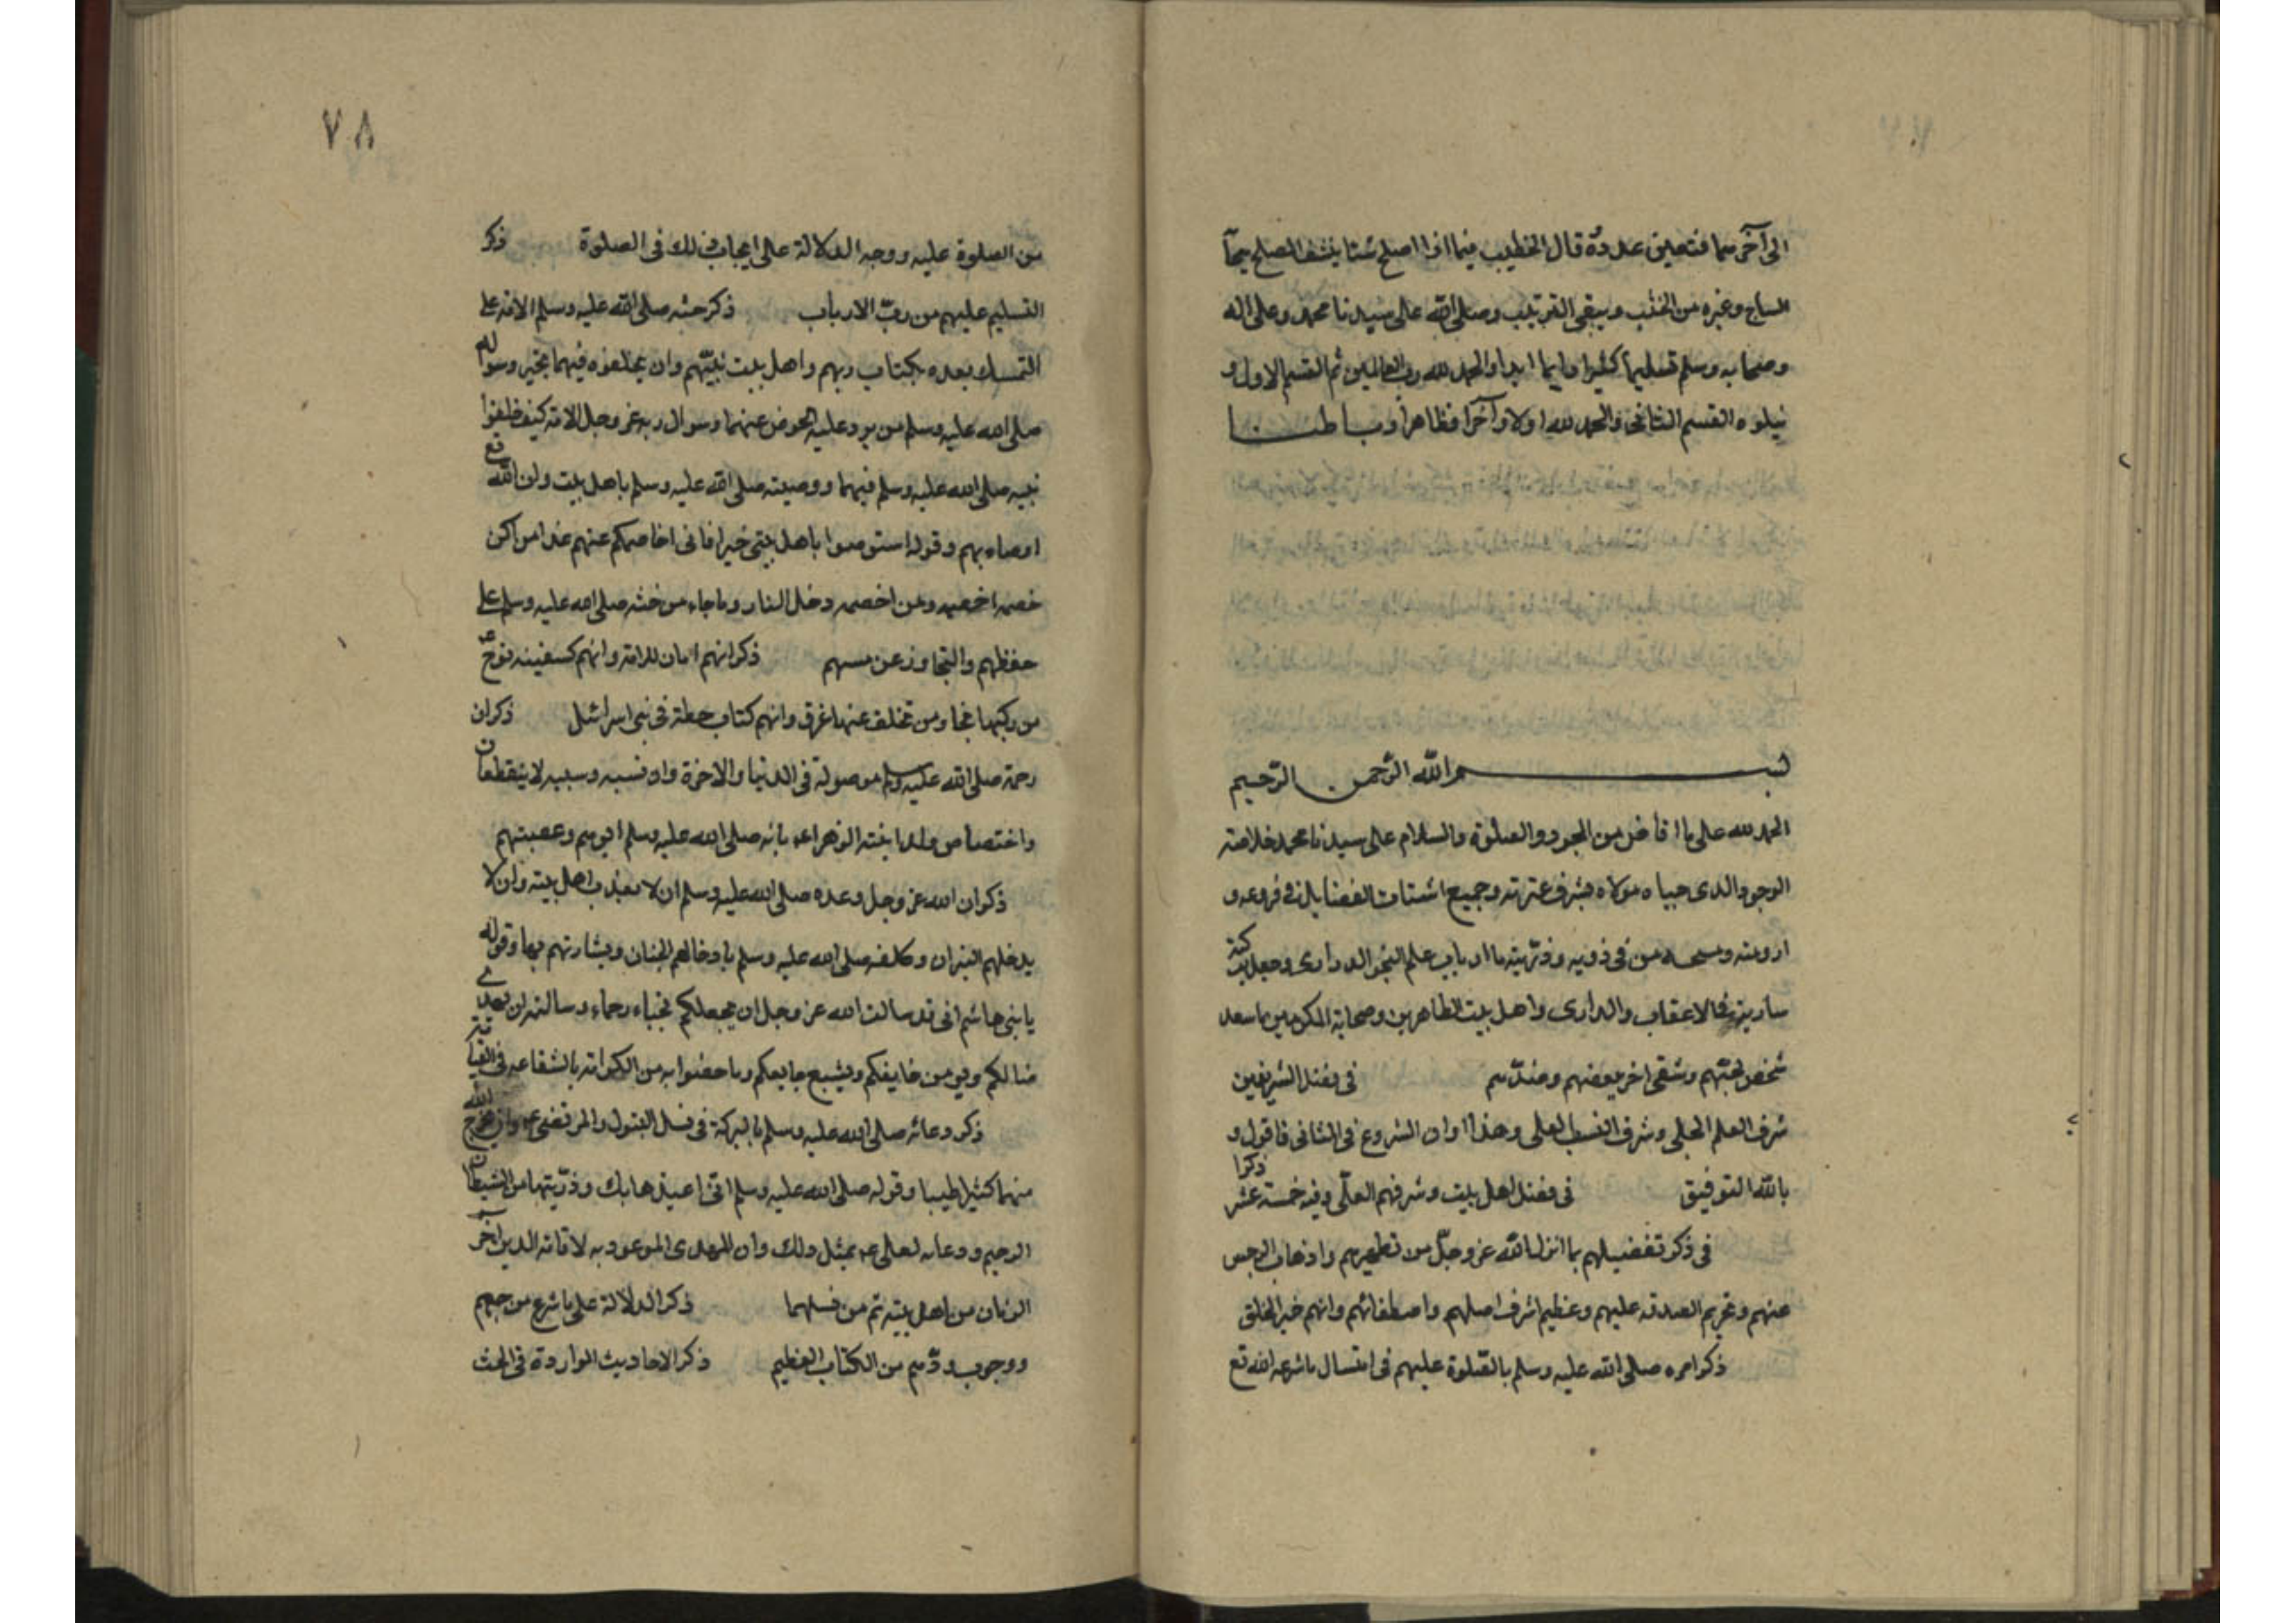 الى آخرسما فتعين عدده قال الخطيب فيما اذا اصلح شتا ينشف المصلح
الساج وغيره من الخشب ويبقى القرتيب وصلى الله على سيدنا محمد وعلى اله
وصحابه وسلم تسليما كثيرا دايما ابدا والحمد لله رب العالمين تم القسم الاول و
يتلوه القسم الثانى والحمد لله اولا وآخرا وظاهرا وباطنا
بسم الله الرحمن الرحيم
الحمد لله على ما افاض من الجود والصلوة والسلام على سيدنا محمد خلاصته
الوجود الذى حباه مولاه بشرف عترته وجميع اشتات الفضايل فى فروعه و
ارومته من فى ذويه وذريته ما ارباب علم النجو الدرارى وجعل بركته
سارية فى الاعقاب والذرارى واهل بيت الطاهرين وصحابة المكرمين ما سعد
شخص بحبهم وشقى اخر ببغضهم فى فضل الشريفين
شرف العلم الجلى وشرف النسب العلى وهذا اوان الشروع فى الثانى فاقول و
بالله التوفيق فى فضل اهل بيت وشرفهم العلى وفيه خمسة عشر ذكرا
فى ذكر تفضيلهم بما انزل الله عز وجل من تطهيرهم واذهاب الرجس
عنهم وتحريم الصدقه عليهم وعظيم شرف اصلهم واصطفائهم وانهم خير الخلق
ذكر امره صلى الله عليه وسلم بالصلوة عليهم فى امتسال ما شرعه الله تع
٧٨
من الصلوة عليه ووجه الدلالة على ايجاب ذلك فى الصلوة ذكر
التسليم عليهم من رب الارباب ذكر حثه صلى الله عليه وسلم الامة على
التمسك بعده بكتاب ربهم واهل بيت نبيهم وان يخلفوه فيهما بخير وسواله
صلى الله عليه وسلم من يرد عليه الحوض عنهما وسوال ربه عز وجل الامة كيف خلفوا
نبيه صلى الله عليه وسلم فيهما ووصيته صلى الله عليه وسلم باهل بيت وان الله تع
اوصاه بهم وقوله استوصوا باهل بيتى خيرا فانى اخاصمكم عنهم غدا من اكن
خصمه اخصمه ومن اخصمه دخل النار وما جاء من حثه صلى الله عليه وسلم على
حفظهم والتجاوز عن مسيهم ذكر انهم امان للامة وانهم كسفينه نوح ع
من ركبها نجا ومن تخلف عنها غرق وانهم كتاب حطة فى بنى اسرائيل ذكر ان
رحمة صلى الله عليه وسلم موصولة فى الدنيا والاخرة وان نسبه وسببه لا ينقطعان
واختصاص ولد ابنته الزهراء بانه صلى الله عليه وسلم ابوهم وعصبتهم
ذكر ان الله عز وجل وعده صلى الله عليه وسلم ان لا يعذب اهل بيته وان لا
يدخلهم النيران وكلفه صلى الله عليه وسلم بادخالهم الجنان وبشارتهم بها وقوله
يا بنى هاشم انى قد سالت الله عز وجل ان يجعلكم نجباء رحماء وسالته ان يهدى
ضالكم ويومن خايفكم ويشبع جايعكم وما حضوا به من الكرامة بالشفاعه فى القيامة
ذكر دعائه صلى الله عليه وسلم بالبركة فى نسل البتول والمرتضى وان يخرج الله
منهما كثيرا طيبا وقوله صلى الله عليه وسلم انى اعيذها بك وذريتها من الشيطان
الرجيم ودعائه لعلى بمثل ذلك وان المهدى الموعود به لاقامة الدين آخر
الزمان من اهل بيته ثم من نسلهما ذكر الدلالة على ما شرع من حبهم
ووجوب ودهم من الكتاب العظيم ذكر الاحاديث الواردة فى الحث